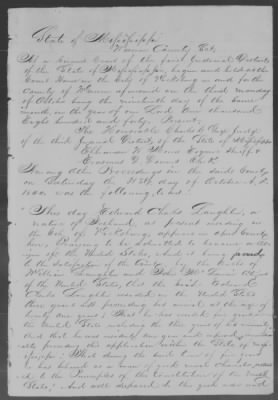 State of Mississippi
Warren County Sct.
At a Circuit Court of the first Judicial District
of the State of Mississippi, begun and held at the
Court House in the City of Vicksburg in and for the
County of Warren aforesaid on the third monday
of October being the nineteenth day of the same
month, in the year of our Lord one thousand
Eight hundred and forty,
The Honorable Charles
of the third Judicial District, of the State of Mississippi
Esquire Sheriff &
Clerk
Among other Proceedings in the said Court
on Saturday the day of October A.D.
1840 was the following, to wit:
This day Edward Charles Laughter, a
native of Ireland, at present residing in
the City of Vicksburg, appears in open Court
here Praying to be admitted to become a Citi-
zen of the United States, where it being proved
to the satisfaction of the Court, by the oath of
William and John Mc
of the United States, that the said Edward
Charles Laughter resided in the United States
three years next preceding his arrival at the age of
twenty one years; That he has resided five years in
the United States including the three years of his minority
And that he has resided one year next immedi-
ately preceding this application within the State of Miss-
issippi; That during the said time of five years
he has behaved as a man of good moral Character, attach-
ed to the Principles of the Constitution of the United
States; And well disposed to the good order and